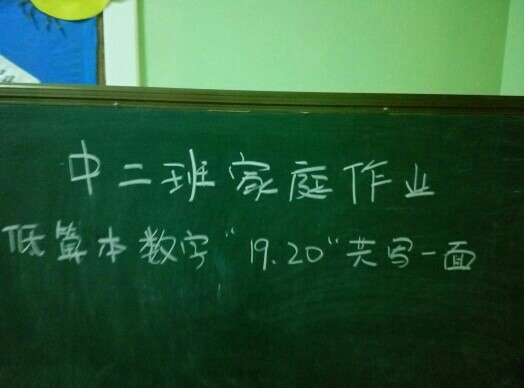 中二班家庭作业
低算本数字“19.20”共写一面